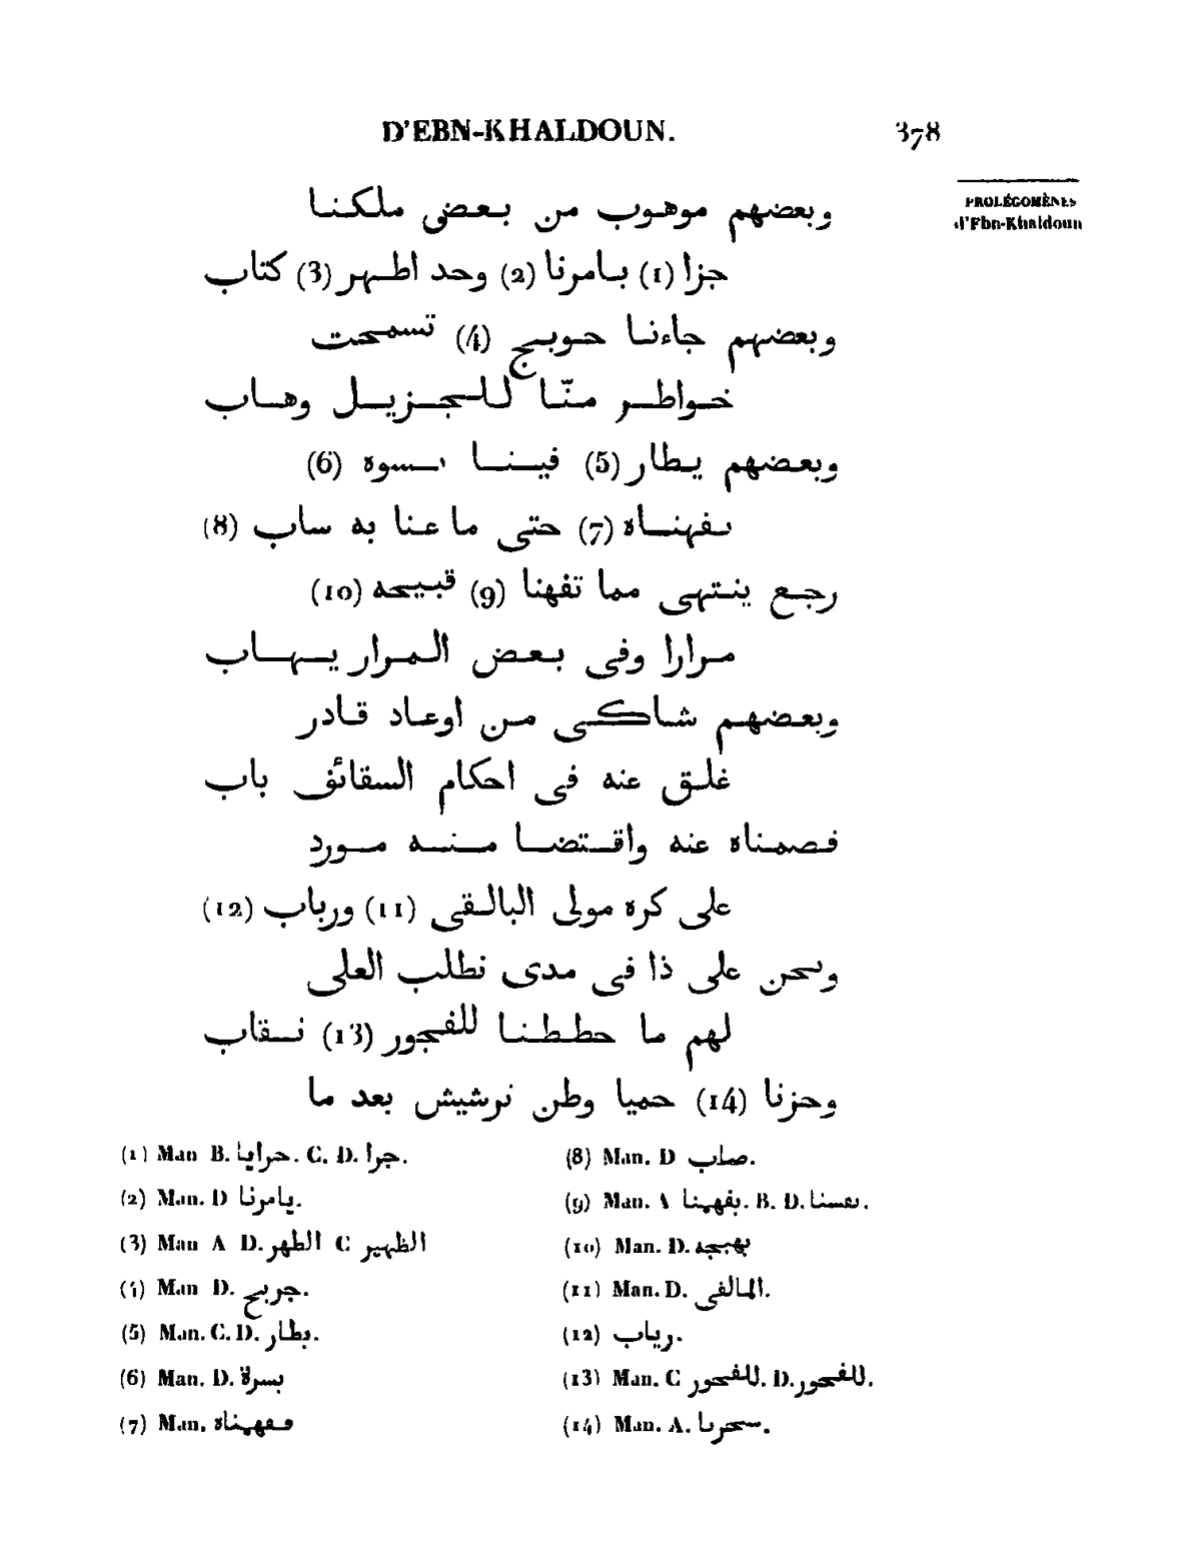 D'EBN-KHALDOUN. 378
PROLÉGOMÈNES
d'Ebn-Khaldoun
وبعضهم موهوب من بعض ملكنا
جزا (1) بامرنا (2) وحد اطهر (3) كتاب
وبعضهم جاءنا حوبج (4) تسمحت
خواطر منّا للجزيل وهاب
وبعضهم يطار (5) فينا ىسوه (6)
ىفهناه (7) حتى ما عنا به ساب (8)
رجع ينتهى مما تفهنا (9) قبيحه (10)
مرارا وفى بعض المرار يهاب
وبعضهم شاكى من اوعاد قادر
غلق عنه فى احكام السقائف باب
فصمناه عنه واقتضا منه مورد
على كره مولى البالقى (11) ورباب (12)
ونحن على ذا فى مدى نطلب العلى
لهم ما حططنا للفجور (13) نقاب
وحزنا (14) حميا وطن نرشيش بعد ما
(1) Man B. حرايا. C. D. جرا.
(2) Man. D يامرنا.
(3) Man A D. الطهر C الظهير
(4) Man D. جربح.
(5) Man. C. D. بطار.
(6) Man. D. بسرة
(7) Man. ڡڡهيناه
(8) Man. D صاب.
(9) Man. A بفهينا. B. D. ىڡسنا.
(10) Man. D.
(11) Man. D. المالفى.
(12) رياب.
(13) Man. C للڡحور. D. للفحور.
(14) Man. A. سحرىا.